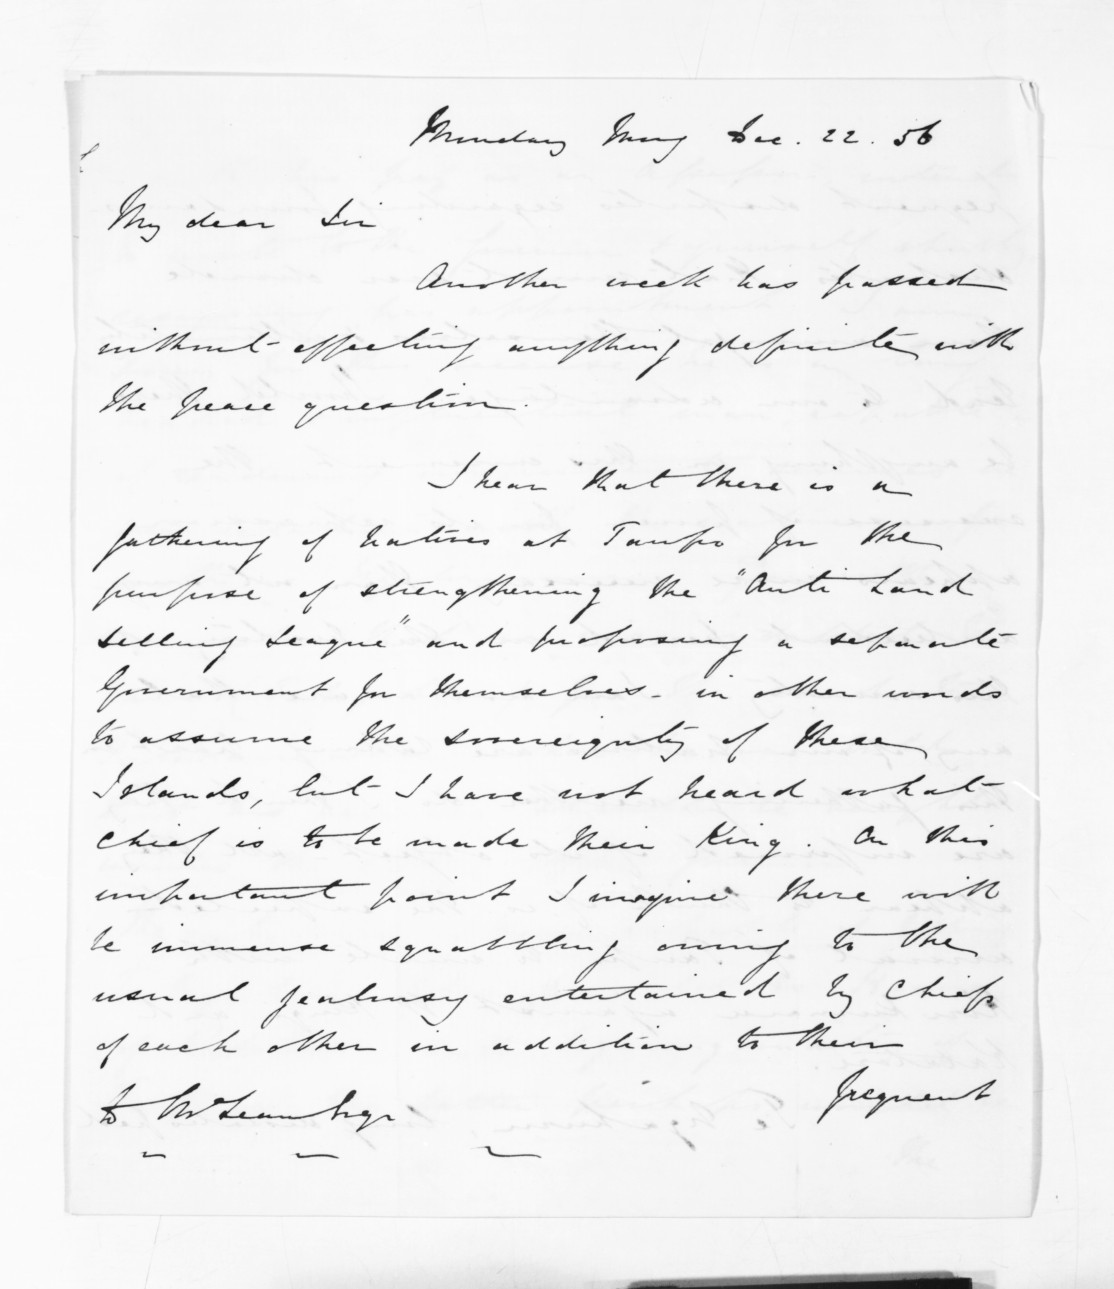 Monday Mng Dec. 22. 56
My dear Sir
Another week has passed
without effecting anything definite with
the peace question.
I hear that there is a
gathering of natives at Taupo for the
purpose of strengthening the "Anti Land
Selling League" and proposing a separate
Government for themselves - in other words
to assume the sovereignty of these
Islands, but I have not heard what
chief is to be made their King. On this
important point I imagine there will
be immense squabbling owing to the
usual jealousy entertained by chiefs
of each other in addition to their
frequent
to McLean Esqr